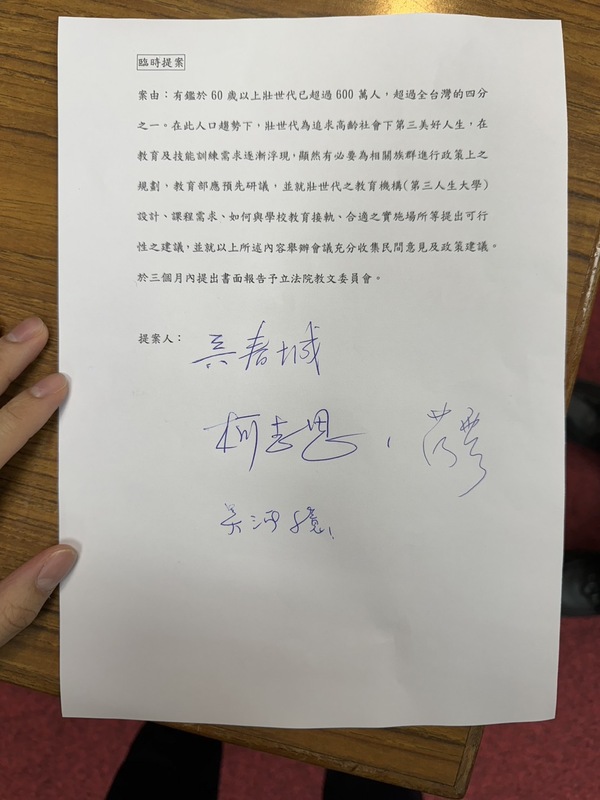 臨時提案
案由：有鑑於60歲以上壯世代已超過600萬人，超過全台灣的四分
之一。在此人口趨勢下，壯世代為追求高齡社會下第三美好人生，在
教育及技能訓練需求逐漸浮現，顯然有必要為相關族群進行政策上之
規劃，教育部應預先研議，並就壯世代之教育機構(第三人生大學)
設計、課程需求、如何與學校教育接軌、合適之實施場所等提出可行
性之建議，並就以上所述內容舉辦會議充分收集民間意見及政策建議。
於三個月內提出書面報告予立法院教文委員會。
提案人：
吳春城
柯志恩，
吳沛憶